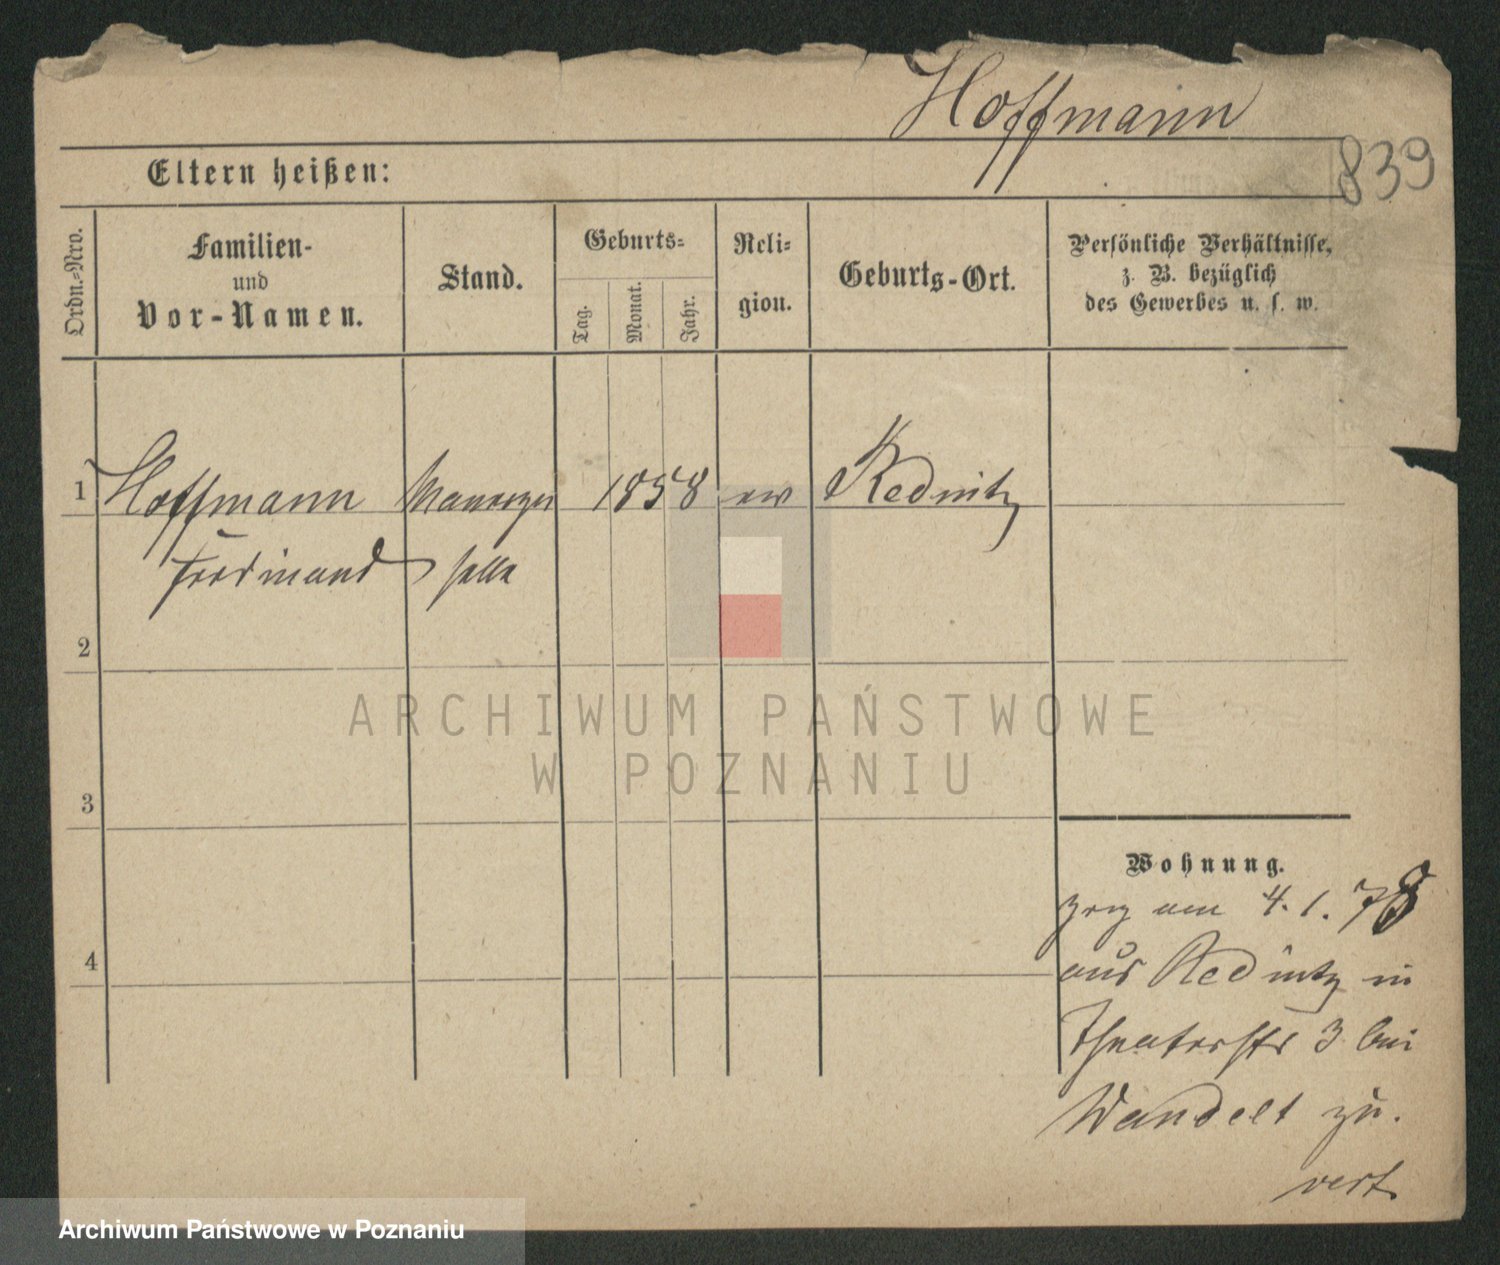 Hoffmann
839
Eltern heißen:
Ordn.-Nro.
Familien-
und
Vor-Namen.
Stand.
Geburts-
Tag.
Monat.
Jahr.
Reli-
gion.
Geburts-Ort.
Persönliche Verhältnisse,
z. B. bezüglich
des Gewerbes u. s. w.
1 Hoffmann Maurerge 1858 ev Rednitz
Ferdinand selle
2
3
4
Wohnung.
zog am 4. 1. 78
aus Rednitz in
Theaterstr 3 bei
Wandelt zu.
ARCHIWUM PAŃSTWOWE
W POZNANIU
Archiwum Państwowe w Poznaniu